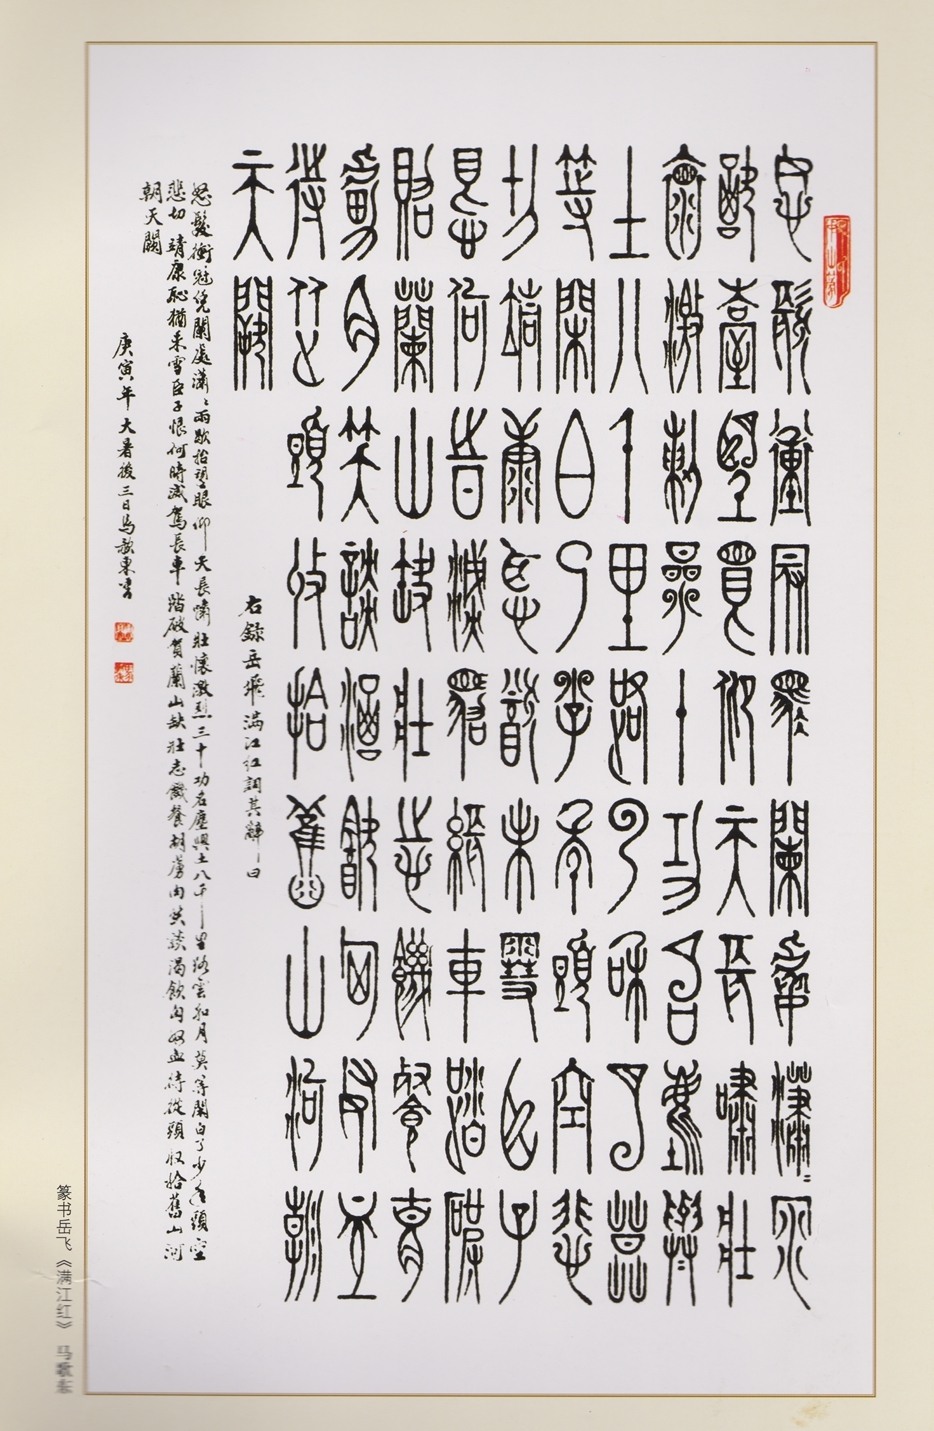 怒髮衝冠凭闌處瀟〻雨
歇抬望眼仰天長嘯壯
懷激烈三十功名塵與
土八千里路雲和月莫
等閑白了少年頭空悲
切靖康恥猶未雪臣子
恨何時滅駕長車踏破
賀蘭山缺壯志饑餐胡
虜肉笑談渴飲匈奴血
待從頭收拾舊山河朝
天闕
右録岳飛滿江紅詞其辭曰
怒髮衝冠凭闌處瀟〻雨歇抬望眼仰天長嘯壯懷激烈三十功名塵與土八千里路雲和月莫等閑白了少年頭空
悲切靖康恥猶未雪臣子恨何時滅駕長車踏破賀蘭山缺壯志饑餐胡虜肉笑談渴飲匈奴血待從頭收拾舊山河
朝天闕
庚寅年大暑後三日馬歌東書
篆书岳飞《满江红》 马歌东